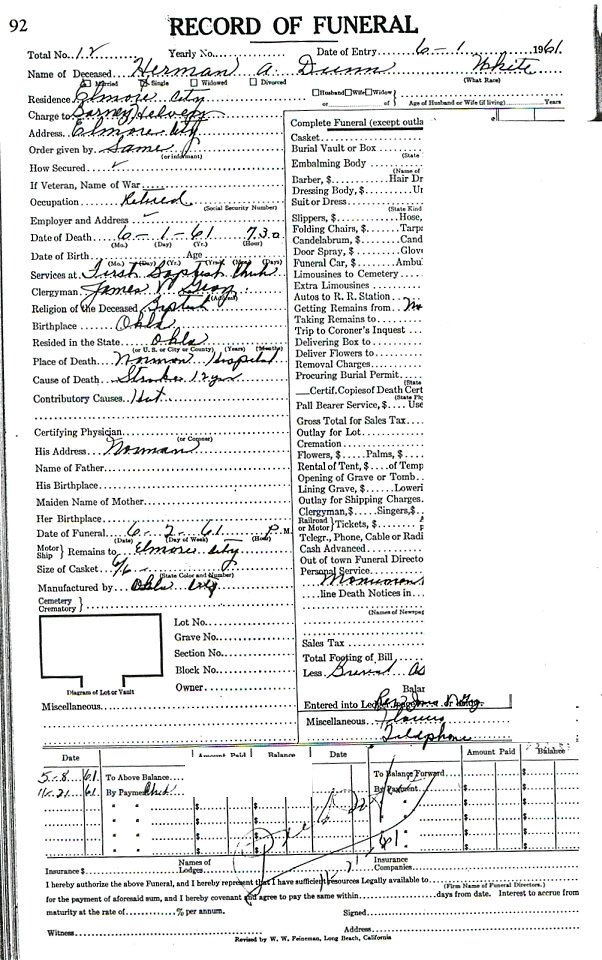 92
RECORD OF FUNERAL
Total No. 12 Yearly No. Date of Entry 6-1 1961
Name of Deceased Herman A. Dunn White
Married Single Widowed Divorced (What Race)
Residence Elmore City
Husband Wife Widow
or of Age of Husband or Wife (if living) Years
Charge to Barney
Address Elmore City
Order given by Same
(or informant)
How Secured
If Veteran, Name of War
Occupation Retired
(Social Security Number)
Employer and Address
Date of Death 6-1-61 7:30
(Mo.) (Day) (Yr.) (Hour)
Date of Birth Age
(Mo.) (Day) (Yr.) (Yrs.) (Mos.) (Days)
Services at First Baptist Chch
Clergyman James V
(Address)
Religion of the Deceased Baptist
Birthplace Okla
Resided in the State Okla
(or U. S. or City or County) (Years) (Months)
Place of Death Norman Hospital
Cause of Death
Contributory Causes
Certifying Physician
(or Coroner)
His Address Norman
Name of Father
His Birthplace
Maiden Name of Mother
Her Birthplace
Date of Funeral 6-2-61 P. M.
(Date) (Day of Week) (Hour)
Motor Ship } Remains to Elmore City
Size of Casket 6/6
(State Color and Number)
Manufactured by Okla City
Cemetery
Crematory }
Lot No.
Grave No.
Section No.
Block No.
Owner
Diagram of Lot or Vault
Miscellaneous
Complete Funeral (except outla
Casket
Burial Vault or Box
(State
Embalming Body
(Name of
Barber, $ Hair Dr
Dressing Body, $ Ur
Suit or Dress
(State Kind
Slippers, $ Hose,
Folding Chairs, $ Tarpa
Candelabrum, $ Cand
Door Spray, $ Glov
Funeral Car, $ Ambu
Limousines to Cemetery
Extra Limousines
Autos to R. R. Station
Getting Remains from No
Taking Remains to
Trip to Coroner's Inquest
Delivering Box to
Deliver Flowers to
Removal Charges
Procuring Burial Permit
(State
Certif. Copies of Death Cert
(State Fl
Pall Bearer Service, $ Use
Gross Total for Sales Tax
Outlay for Lot
Cremation
Flowers, $ Palms, $
Rental of Tent, $ of Temp
Opening of Grave or Tomb
Lining Grave, $ Loweri
Outlay for Shipping Charges
Clergyman, $ Singers, $
Railroad or Motor } Tickets, $
Telegr., Phone, Cable or Radi
Cash Advanced
Out of town Funeral Directo
Personal Service
line Death Notices in
(Names of Newspap
Sales Tax
Total Footing of Bill
Less Burial As
Balan
Entered into Ledger
Miscellaneous Flowers
Telephone
Date Amount Paid Balance Date Amount Paid Balance
5-8 61 To Above Balance To Balance Forwarded
11-21 61 By Payment Chck By Payment
Insurance $ Names of Lodges Insurance Companies
I hereby authorize the above Funeral, and I hereby represent that I have sufficient resources Legally available to
(Firm Name of Funeral Directors.)
for the payment of aforesaid sum, and I hereby covenant and agree to pay the same within days from date. Interest to accrue from
maturity at the rate of % per annum. Signed
Witness Address
Revised by W. W. Feineman, Long Beach, California